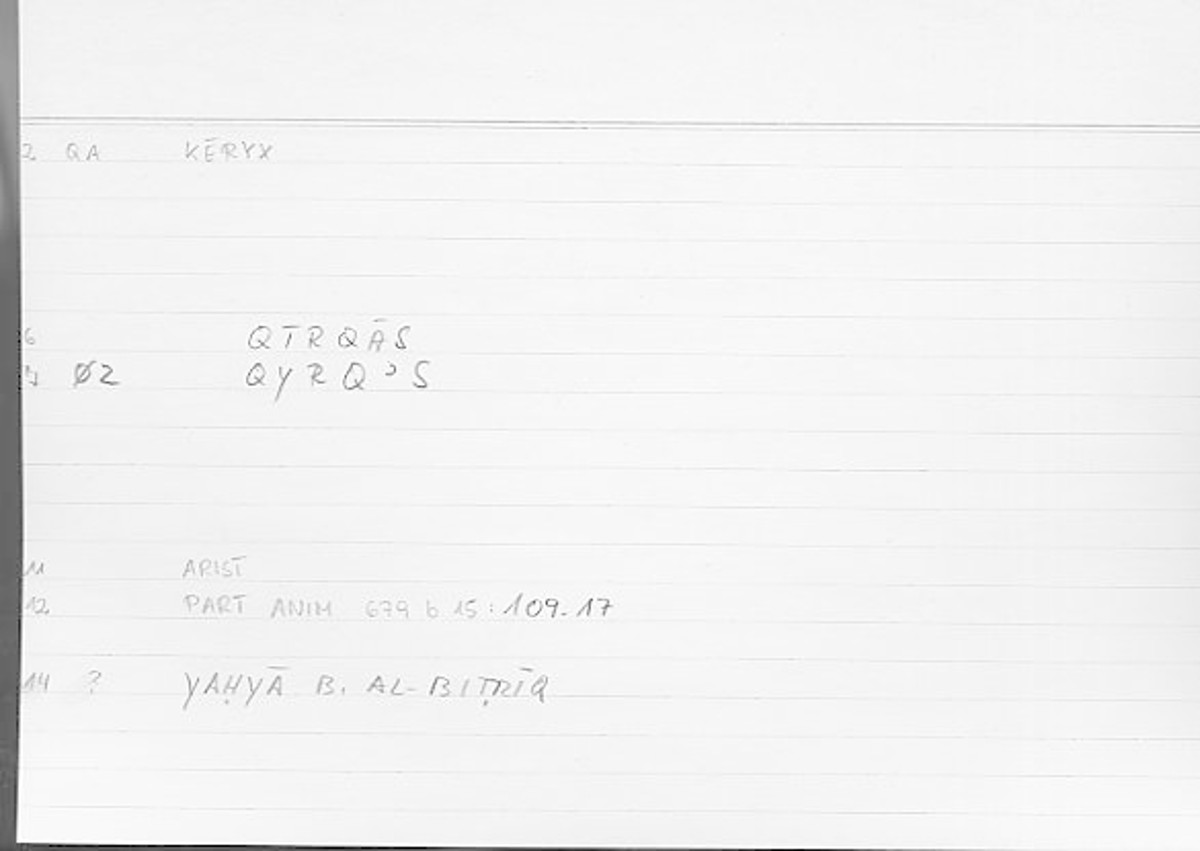 2 QA KĒRYX
6 QĪRQĀS
7 Ø2 QYRQɔS
11 ARIST
12 PART ANIM 679 b 15 : 109.17
14 ? YAḤYĀ B. AL-BIṬRĪQ